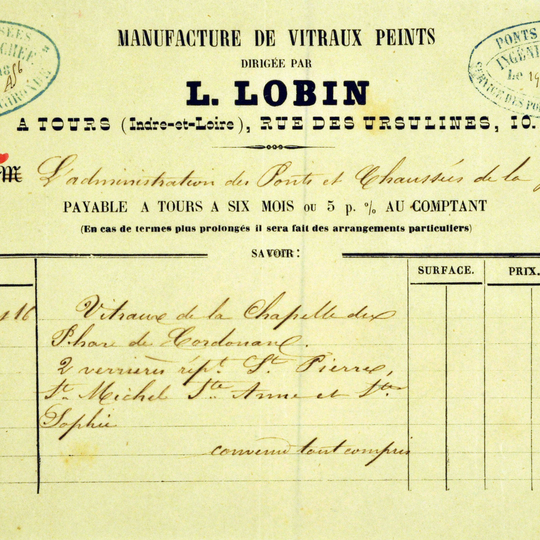 MANUFACTURE DE VITRAUX PEINTS
DIRIGÉE PAR
L. LOBIN
A TOURS (Indre-et-Loire), RUE DES URSULINES, 10.
M L'administration des Ponts et Chaussées de la
PAYABLE A TOURS A SIX MOIS ou 5 p. % AU COMPTANT
(En cas de termes plus prolongés il sera fait des arrangements particuliers)
SAVOIR:
SURFACE.
PRIX.
16
Vitraux de la Chapelle du
Phare de Cordouan.
2 verrières rept. St. Pierre,
St. Michel Ste. Anne et Ste.
Sophie
convenu tout compris
PONTS
INGÉNI
Le 19
SERVICE DES PO